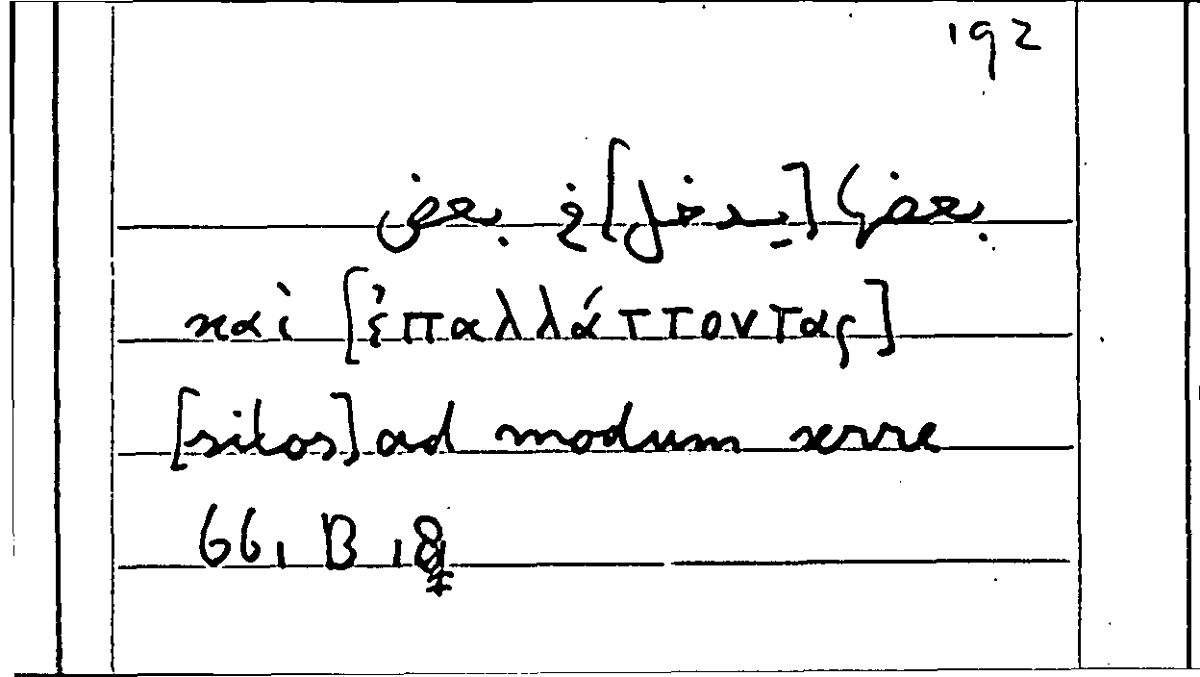 192
بعضها [يدخل] في بعض
καὶ [ἐπαλλάττοντας]
[sitos] ad modum serre
66, B 18